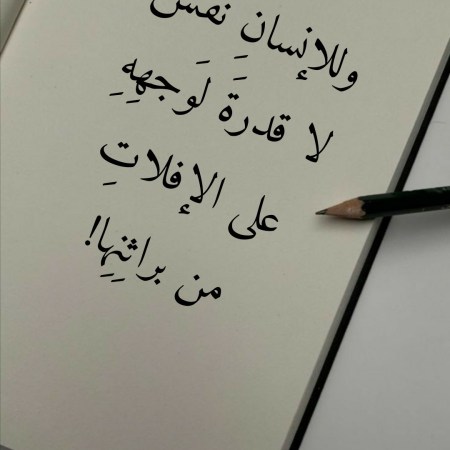 وللإنسانِ نفس
لا قدرةَ لَوجهِهِ
على الإفلاتِ
من براثِنِها!